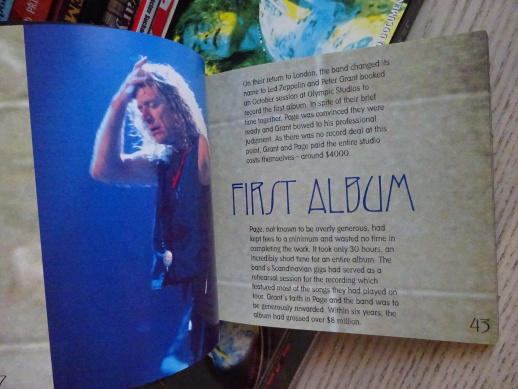 On their return to London, the band changed its
name to Led Zeppelin and Peter Grant booked
an October session at Olympic Studios to
record the first album. In spite of their brief
time together, Page was convinced they were
ready and Grant bowed to his professional
judgment. As there was no record deal at this
point, Grant and Page paid the entire studio
costs themselves - around $4000.
FIRST ALBUM
Page, not known to be overly generous, had
kept fees to a minimum and wasted no time in
completing the work. It took only 30 hours, an
incredibly short time for an entire album. The
band's Scandinavian gigs had served as a
rehearsal session for the recording which
featured most of the songs they had played on
tour. Grant's faith in Page and the band was to
be generously rewarded. Within six years, the
album had grossed over $8 million.
43